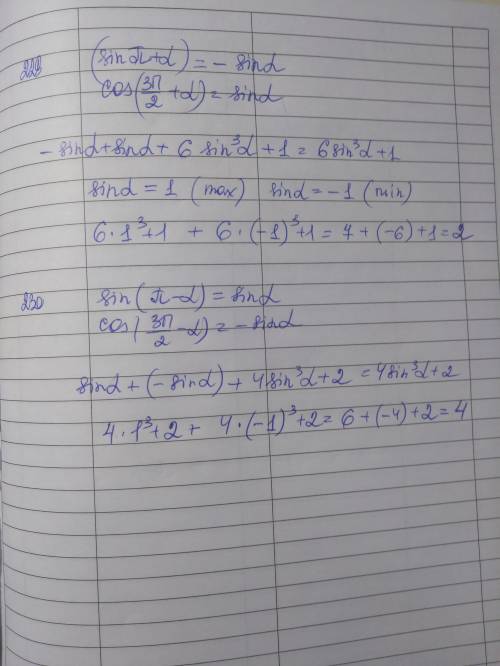 229
(sin π+α) = - sinα
cos(3π/2 + α) = sinα
- sinα + sinα + 6 sin³α + 1 = 6 sin³α + 1
sinα = 1 (max) sinα = -1 (min)
6·1³+1 + 6·(-1)³+1 = 7 + (-6) + 1 = 2
230
sin(π-α) = sinα
cos(3π/2 - α) = - sinα
sinα + (- sinα) + 4sin³α + 2 = 4sin³α + 2
4·1³+2 + 4·(-1)³+2 = 6 + (-4) + 2 = 4